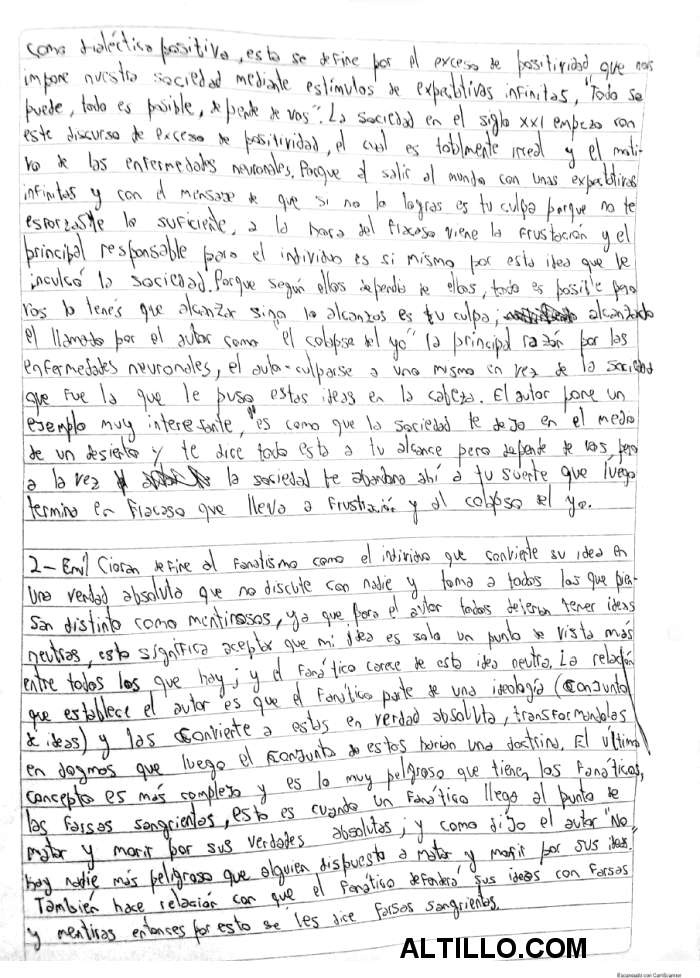 como dialéctica positiva, esto se define por el exceso de positividad que nos
impone nuestra sociedad mediante estímulos de expectativas infinitas, "Todo se
puede, todo es posible, depende de vos". La sociedad en el siglo XXI empezo con
este discurso de exceso de positividad, el cual es totalmente irreal y el moti-
vo de las enfermedades neuronales. Porque al salir al mundo con unas expectativas
infinitas y con el mensaje de que si no lo logras es tu culpa porque no te
esforzaste lo suficiente, a la hora del fracaso viene la frustración y el
principal responsable para el individuo es si mismo por esta idea que le
inculcó la sociedad. Porque según ellos dependio de ellos, todo es posible pero
vos lo tenés que alcanzar sino lo alcanzas es tu culpa, alcanzado
el llamado por el autor como "el colapso del yo" la principal razón por las
enfermedades neuronales, el auto-culparse a uno mismo en vez de la sociedad
que fue la que le puso estas ideas en la cabeza. El autor pone un
ejemplo muy interesante, "es como que la sociedad te dejo en el medio
de un desierto y te dice todo esta a tu alcance pero depende de vos, pero
a la vez la sociedad te abandona ahí a tu suerte que luego
termina en fracaso que lleva a frustración y al colapso del yo.
2- Emil Cioran define al fanatismo como el individuo que convierte su idea en
una verdad absoluta que no discute con nadie y toma a todos los que pien-
san distinto como mentirosos, ya que para el autor todos deberian tener ideas
neutras, esto significa aceptar que mi idea es solo un punto de vista más
entre todos los que hay; y el fanático carece de esta idea neutra. La relación
que establece el autor es que el fanático parte de una ideología (Conjunto
de ideas) y las convierte a estas en verdad absoluta, transformandolas
en dogmas que luego el conjunto de estos harian una doctrina. El último
concepto es más complejo y es lo muy peligroso que tienen los fanáticos,
las farsas sangrientas, esto es cuando un fanático llega al punto de
matar y morir por sus verdades absolutas; y como dijo el autor "No
hay nadie más peligroso que alguien dispuesto a matar y morir por sus ideas."
También hace relación con que el fanático defenderá sus ideas con farsas
y mentiras entonces por esto se les dice farsas sangrientas.
ALTILLO.COM
Escaneado con CamScanner